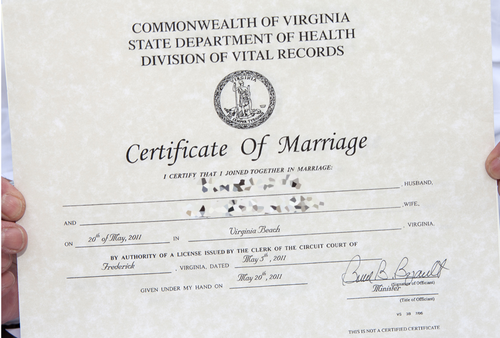 COMMONWEALTH OF VIRGINIA
STATE DEPARTMENT OF HEALTH
DIVISION OF VITAL RECORDS
VIRGINIA
Certificate Of Marriage
I CERTIFY THAT I JOINED TOGETHER IN MARRIAGE:
HUSBAND,
AND WIFE,
ON 20th of May, 2011 IN Virginia Beach, VIRGINIA,
BY AUTHORITY OF A LICENSE ISSUED BY THE CLERK OF THE CIRCUIT COURT OF
Frederick, VIRGINIA, DATED May 5th, 2011
GIVEN UNDER MY HAND ON May 20th, 2011
(Signature of Officiant)
Minister
(Title of Officiant)
THIS IS NOT A CERTIFIED CERTIFICATE